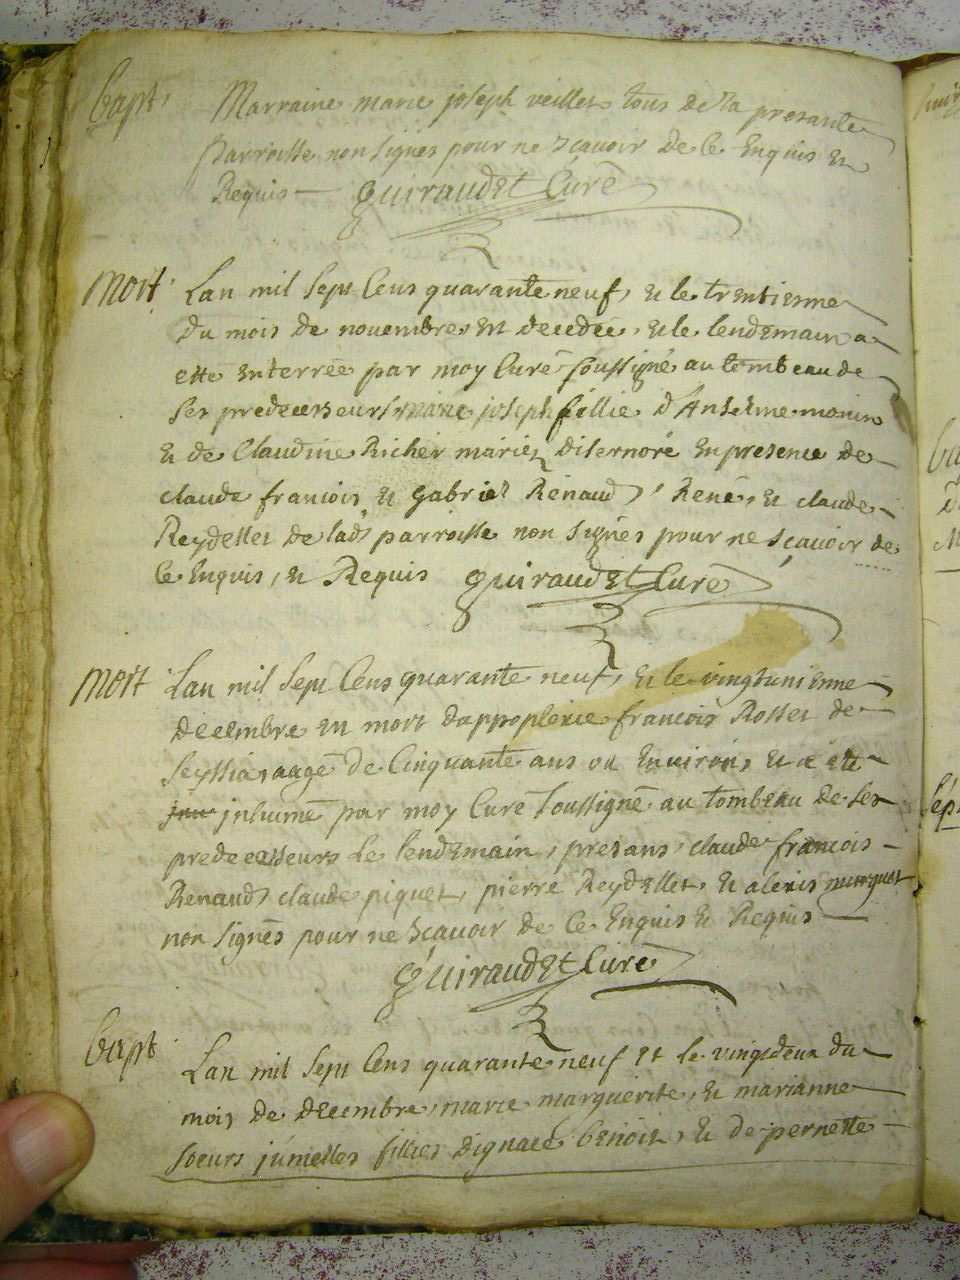 bapt
Marraine marie joseph veillet tous de la presante
parroisse non signes pour ne scavoir de ce Enquis Et
Requis Guiraudet Curé
Mort Lan mil sept Cens quarante neuf, et le trentienne
du mois de novembre est decedée, et le lendemain a
etté enterrée par moy Curé soussigné au tombeau de
ses predecesseurs marie joseph fillie d'Anselme monin
et de Claudine Richer mariez disernore En presence de
claude francois et gabriel Renaud, René, et claude
Reydellet de lad parroisse non signés pour ne scavoir de
Ce Enquis, et Requis Guiraudet Curé
Mort Lan mil sept Cens quarante neuf, et le vingtunienne
decembre est mort dapoplexie francois Rosset de
seyssia aagé de Cinquante ans ou Environ, et a eté
inhumé par moy Curé soussigné au tombeau de ses
predecesseurs le lendemain, presans, claude francois
Renaud, claude piquet, pierre Reydellet, et alexis
non signés pour ne scavoir de Ce Enquis et Requis
Guiraudet Curé
bapt
Lan mil sept Cens quarante neuf et le vingtdeux du
mois de decembre, marie marguerite, et marianne
soeurs jumelles fillies dignace benoit, et de pernette